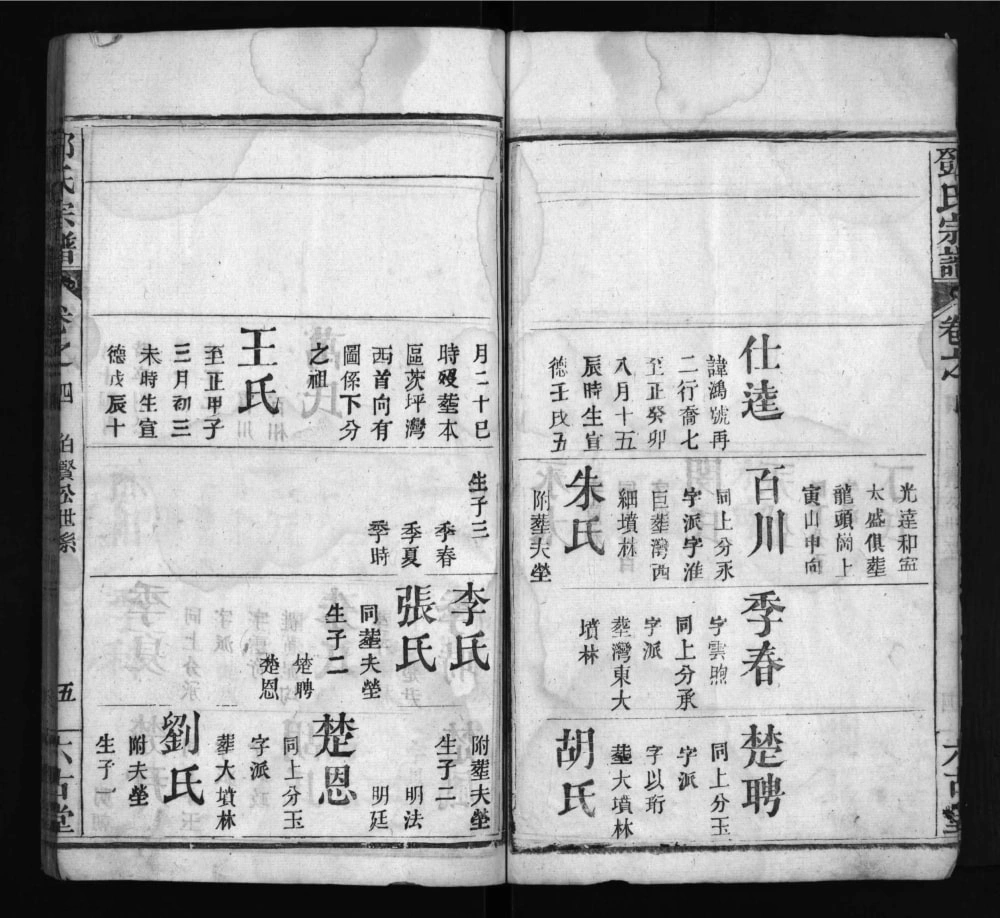 鄧氏宗譜
卷之
六古堂
仕逵
諱鴻號再
二行喬七
至正癸卯
八月十五
辰時生宣
德壬戌五
光逵和宻
太盛俱塟
龍頭崗上
寅山申向
百川
同上分永
字派字淮
巨塟灣西
細墳林
朱氏
附塟夫塋
季春
字雲煦
同上分承
字派
塟灣東大
墳林
楚聘
同上分玉
字派
字以珩
塟大墳林
胡氏
月二十巳
時歿塟本
區茨坪灣
西首向有
圖係下分
之祖
王氏
至正甲子
三月初三
未時生宣
德戊辰十
生子三
季春
季夏
季時
李氏
張氏
同塟夫塋
生子二
楚聘
楚恩
附塟夫塋
生子二
明法
明廷
楚恩
同上分玉
字派
塟大墳林
劉氏
附夫塋
生子一
氏宗譜
卷之四
伯賢公世系
五
六古堂